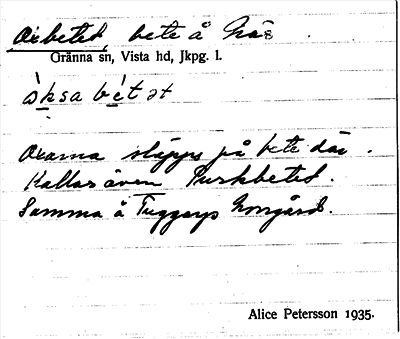 Oxbetet, bete å Näs.
Gränna sn, Vista hd, Jkpg. l.
òksa bétət
Oxarna släpps på bete där.
Kallas även Kurkbetet.
Samma å Norrgård.
Alice Petersson 1935.